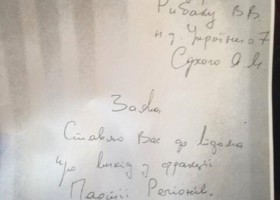 Рибаку В.В.
н.д. України 7
Сухого Я.М
Заява
Ставлю Вас до відома
про вихід з фракції
Партії Регіонів.